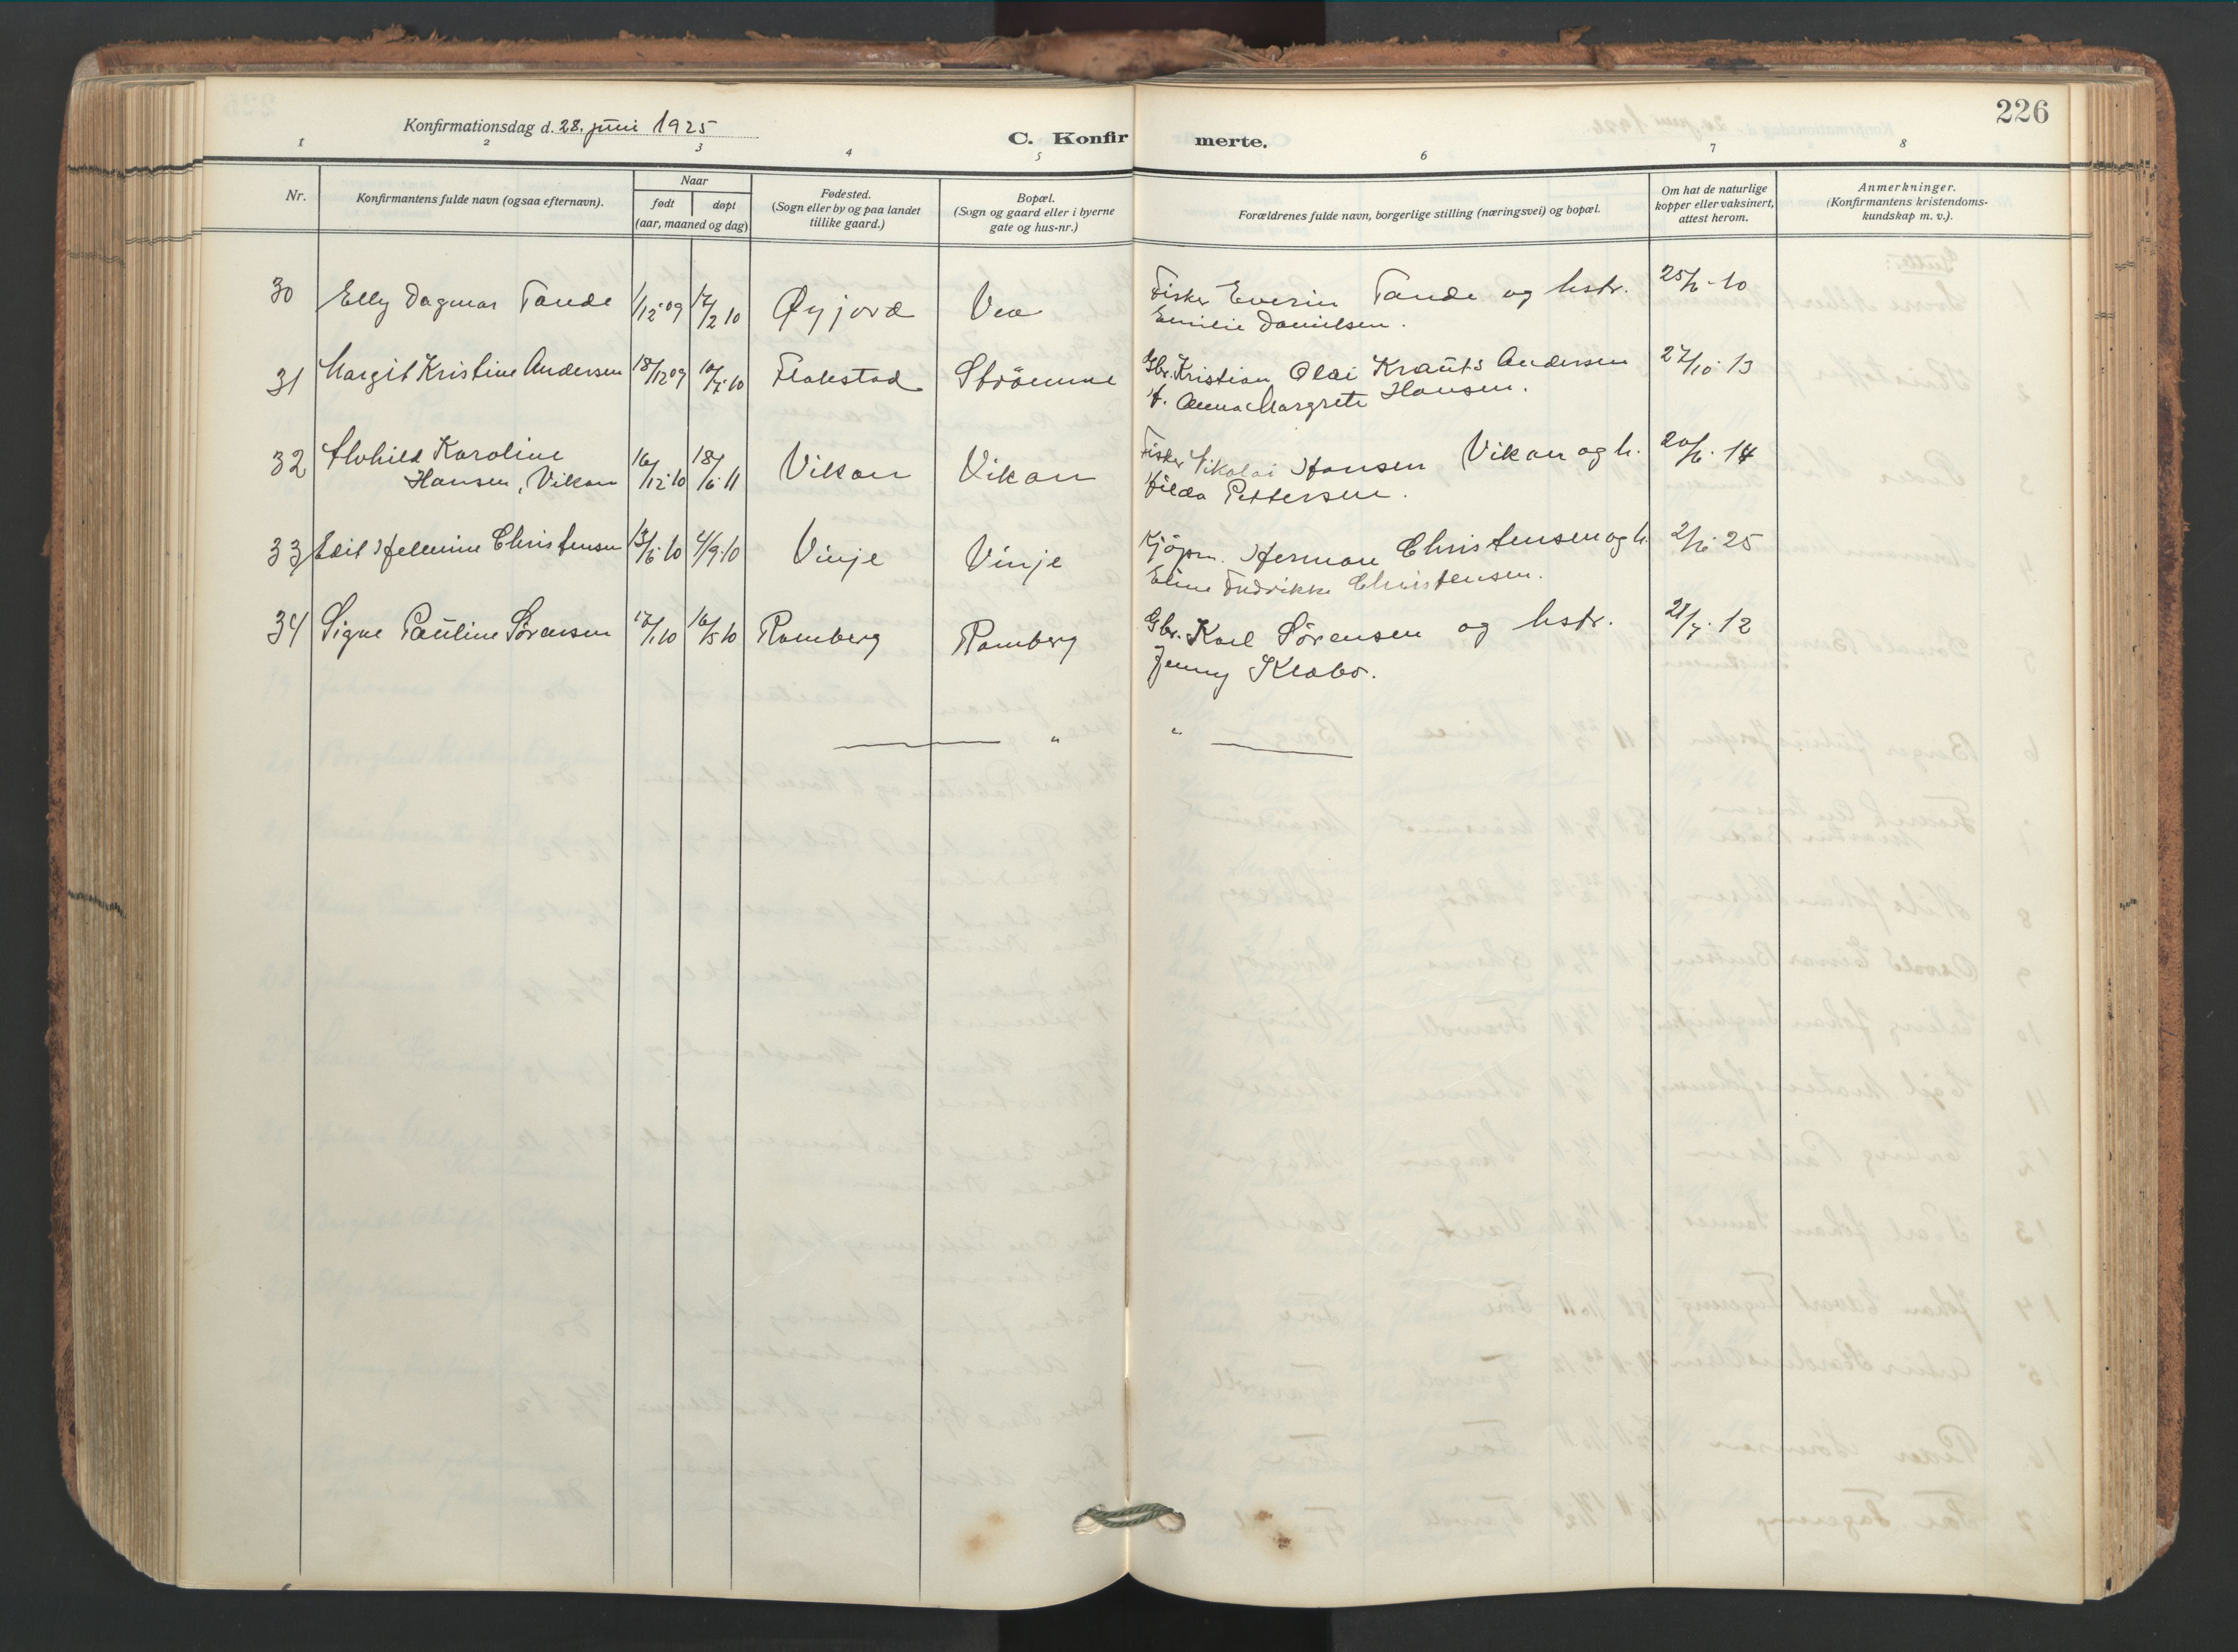 226
Konfirmationsdag d. 28. juni 1925
C. Konfirmerte.
1 2 3 4 5 6 7 8
Nr.
Konfirmantens fulde navn (ogsaa efternavn).
Naar
født døpt
(aar, maaned og dag)
Fødested.
(Sogn eller by og paa landet
tillike gaard.)
Bopæl.
(Sogn og gaard eller i byerne
gate og hus-nr.)
Forældrenes fulde navn, borgerlige stilling (næringsvei) og bopæl.
Om hat de naturlige
kopper eller vaksinert,
attest herom.
Anmerkninger.
(Konfirmantens kristendoms-
kundskap m. v.).
30 Elly Dagmar Tande 1/12 09 /2 10 Øyjord Vea Fisker Everin Tande og hstr. 25/6 - 10
Emilie Danielsen.
31 Margit Kristine Andersen 18/12 09 10/7 10 Flakstad Strömme Gbr. Kristian Olai Krauts Andersen 27/10 13
h. Anna Margrete Hansen.
32 Alvhild Karoline
Hansen, Vikan 16/12 10 18/6 11 Vikan Vikan Fisker Nikolai Hansen Vikan og h. 20/6 14
Hilda Pettersen.
33 Edit Helmine Christensen 13/6 10 4/9 10 Vinje Vinje Kjöpm. Herman Christensen og h. 2/6 25
Eline Fredrikke Christensen.
34 Signe Pauline Sørensen /1 10 16/5 10 Ramberg Ramberg Gbr. Karl Sørensen og hstr. 21/7 12
Jenny Klabo.
— " " —